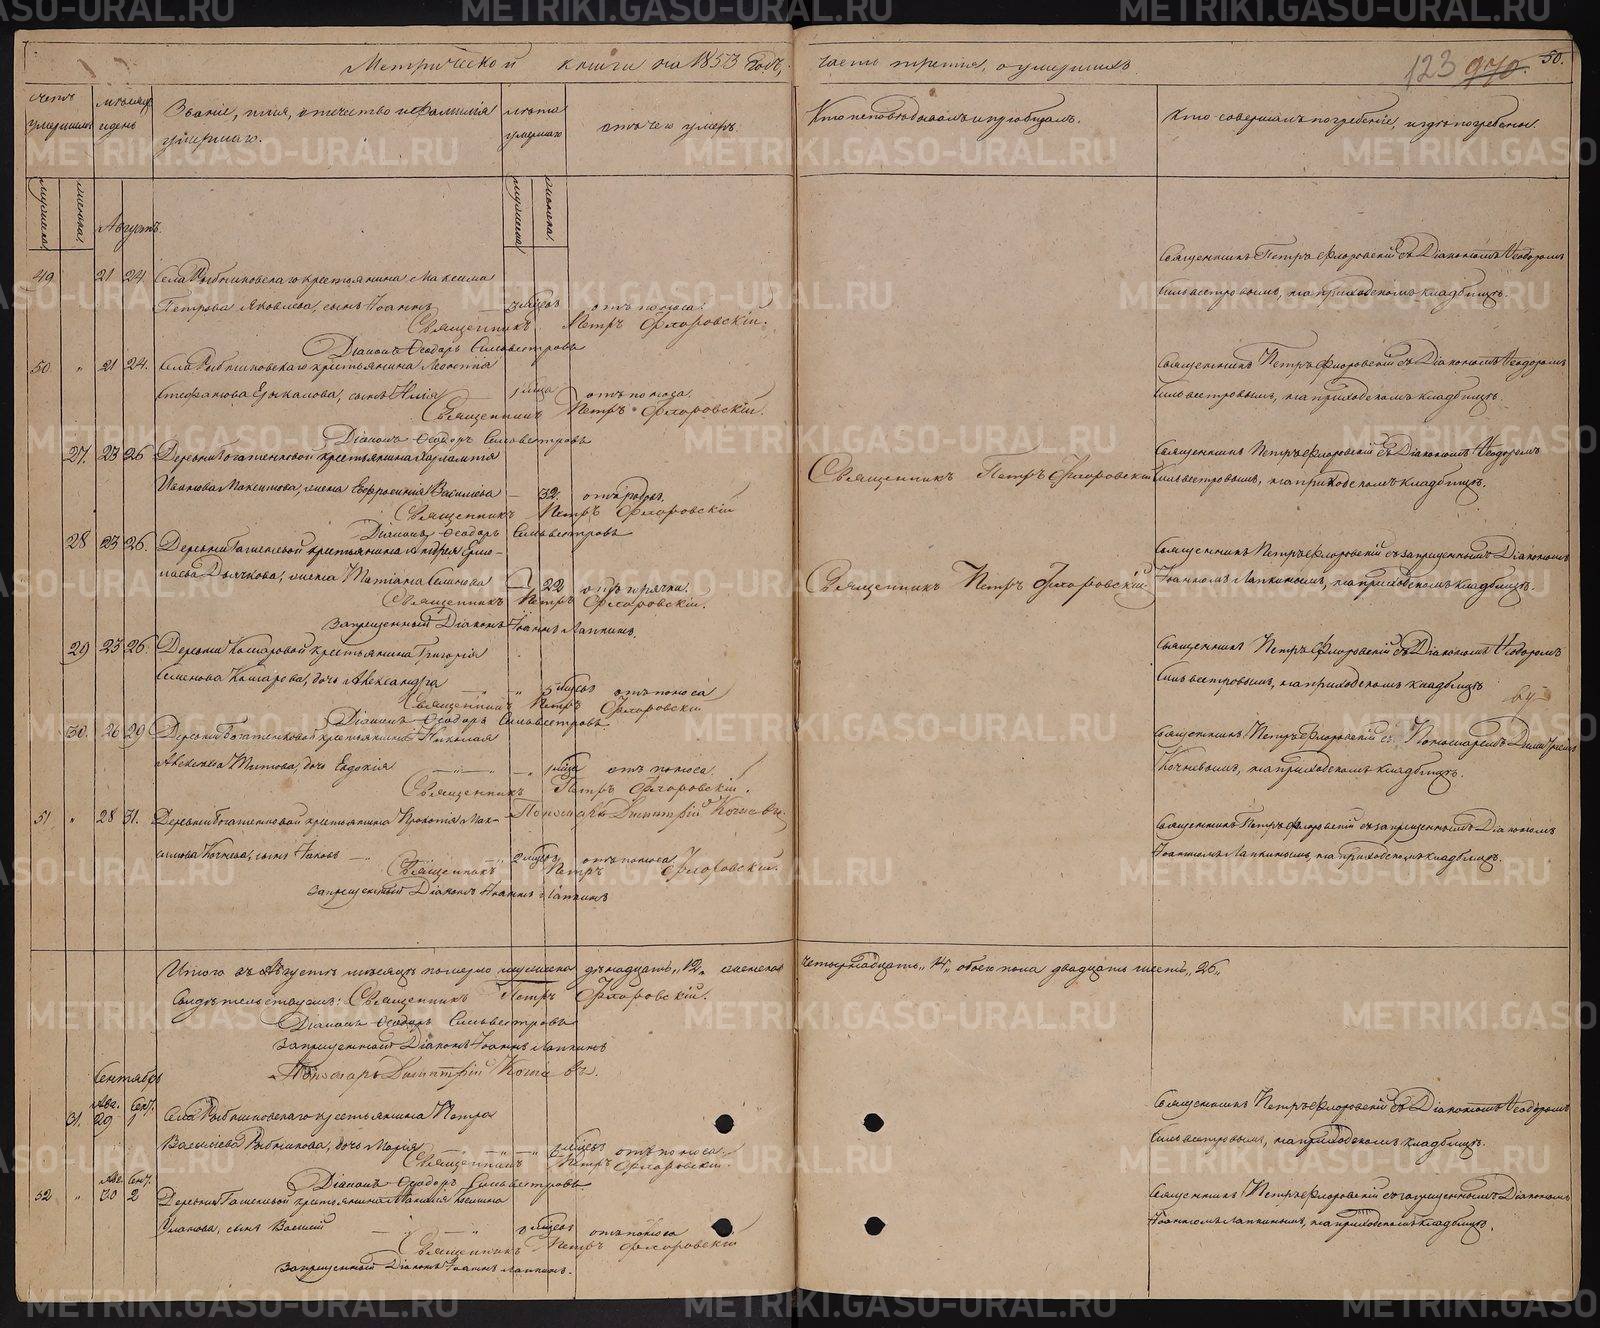 Метрической книги на 1853 годъ, часть третія, о умершихъ.
123 970. 50.
Счетъ умершихъ
мѣсяцъ и день
Званіе, имя, отчество и фамилія умершаго.
лѣта умершаго
отъ чего умеръ.
Кто исповѣдывалъ и пріобщалъ.
Кто совершалъ погребеніе, и гдѣ погребены.
мужеска
женска.
мужеска
женска.
Августъ.
49 21 24. Села Рыбниковскаго крестьянина Максима
Петрова Яковлева, сынъ Іоаннъ отъ поноса.
Священникъ Петръ Флоровскій.
Діаконъ Ѳеодоръ Сильвестровъ
Священникъ Петръ Флоровскій съ Діакономъ Ѳеодоромъ
Сильвестровымъ, на приходскомъ кладбищѣ.
50 " 21 24. Села Рыбниковскаго крестьянина Леонтія
сынъ Илія отъ поноса.
Священникъ Петръ Флоровскій.
Діаконъ Ѳеодоръ Сильвестровъ
Священникъ Петръ Флоровскій съ Діакономъ Ѳеодоромъ
Сильвестровымъ, на приходскомъ кладбищѣ.
27. 23 26 Деревни Богатенковой крестьянина Харлампія
Иванова Максимова, жена Евфросинія Васильева — 32. отъ родовъ.
Священникъ Петръ Флоровскій
Діаконъ Ѳеодоръ Сильвестровъ
Священникъ Петръ Флоровскій
Священникъ Петръ Флоровскій съ Діакономъ Ѳеодоромъ
Сильвестровымъ, на приходскомъ кладбищѣ.
28 23 26. Деревни крестьянина Андрея Ермо-
лаева Дьячкова, жена Татіана Семенова — 22 отъ горячки.
Священникъ Петръ Флоровскій.
Запрещенный Діаконъ Іоаннъ Лапкинъ.
Священникъ Петръ Флоровскій
Священникъ Петръ Флоровскій съ запрещеннымъ Діакономъ
Іоанномъ Лапкинымъ, на приходскомъ кладбищѣ.
29 23 26. Деревни Кошкаровой крестьянина Григорія
Семенова дочь Александра отъ поноса
Священникъ Петръ Флоровскій
Діаконъ Ѳеодоръ Сильвестровъ.
Священникъ Петръ Флоровскій съ Діакономъ Ѳеодоромъ
Сильвестровымъ, на приходскомъ кладбищѣ
30. 26 29 Деревни Богатенковой крестьянина Николая
Титова, дочь Евдокія отъ поноса.
Священникъ Петръ Флоровскій.
Пономарь Димитрій Кочневъ.
Священникъ Петръ Флоровскій съ Пономаремъ Димитріемъ
Кочневымъ, на приходскомъ кладбищѣ.
51 " 28 31. Деревни Богатенковой крестьянина Прокопія Мак-
симова сынъ Іаковъ отъ поноса
Священникъ Петръ Флоровскій.
Запрещенный Діаконъ Іоаннъ Лапкинъ
Священникъ Петръ Флоровскій съ запрещеннымъ Діакономъ
Іоанномъ Лапкинымъ, на приходскомъ кладбищѣ.
Итого въ Августѣ мѣсяцѣ померло мужеска двѣнадцать "12" женска четырнадцать "14" обоего пола двадцать шесть "26"
Свидѣтельствуемъ: Священникъ Петръ Флоровскій.
Діаконъ Ѳеодоръ Сильвестровъ
Запрещенный Діаконъ Іоаннъ Лапкинъ
Пономарь Димитрій Кочневъ.
Сентябрь
Авг. Сент.
31. 29 1 Села Рыбниковскаго крестьянина Петра
Васильева Рыбникова, дочь Марія отъ поноса.
Священникъ Петръ Флоровскій.
Діаконъ Ѳеодоръ Сильвестровъ.
Священникъ Петръ Флоровскій съ Діакономъ Ѳеодоромъ
Сильвестровымъ, на приходскомъ кладбищѣ.
Авг. Сент.
52 " 30 2 Деревни крестьянина
сынъ Василій отъ поноса
Священникъ Петръ Флоровскій
Запрещенный Діаконъ Іоаннъ Лапкинъ.
Священникъ Петръ Флоровскій съ запрещеннымъ Діакономъ
Іоанномъ Лапкинымъ, на приходскомъ кладбищѣ.
METRIKI.GASO-URAL.RU